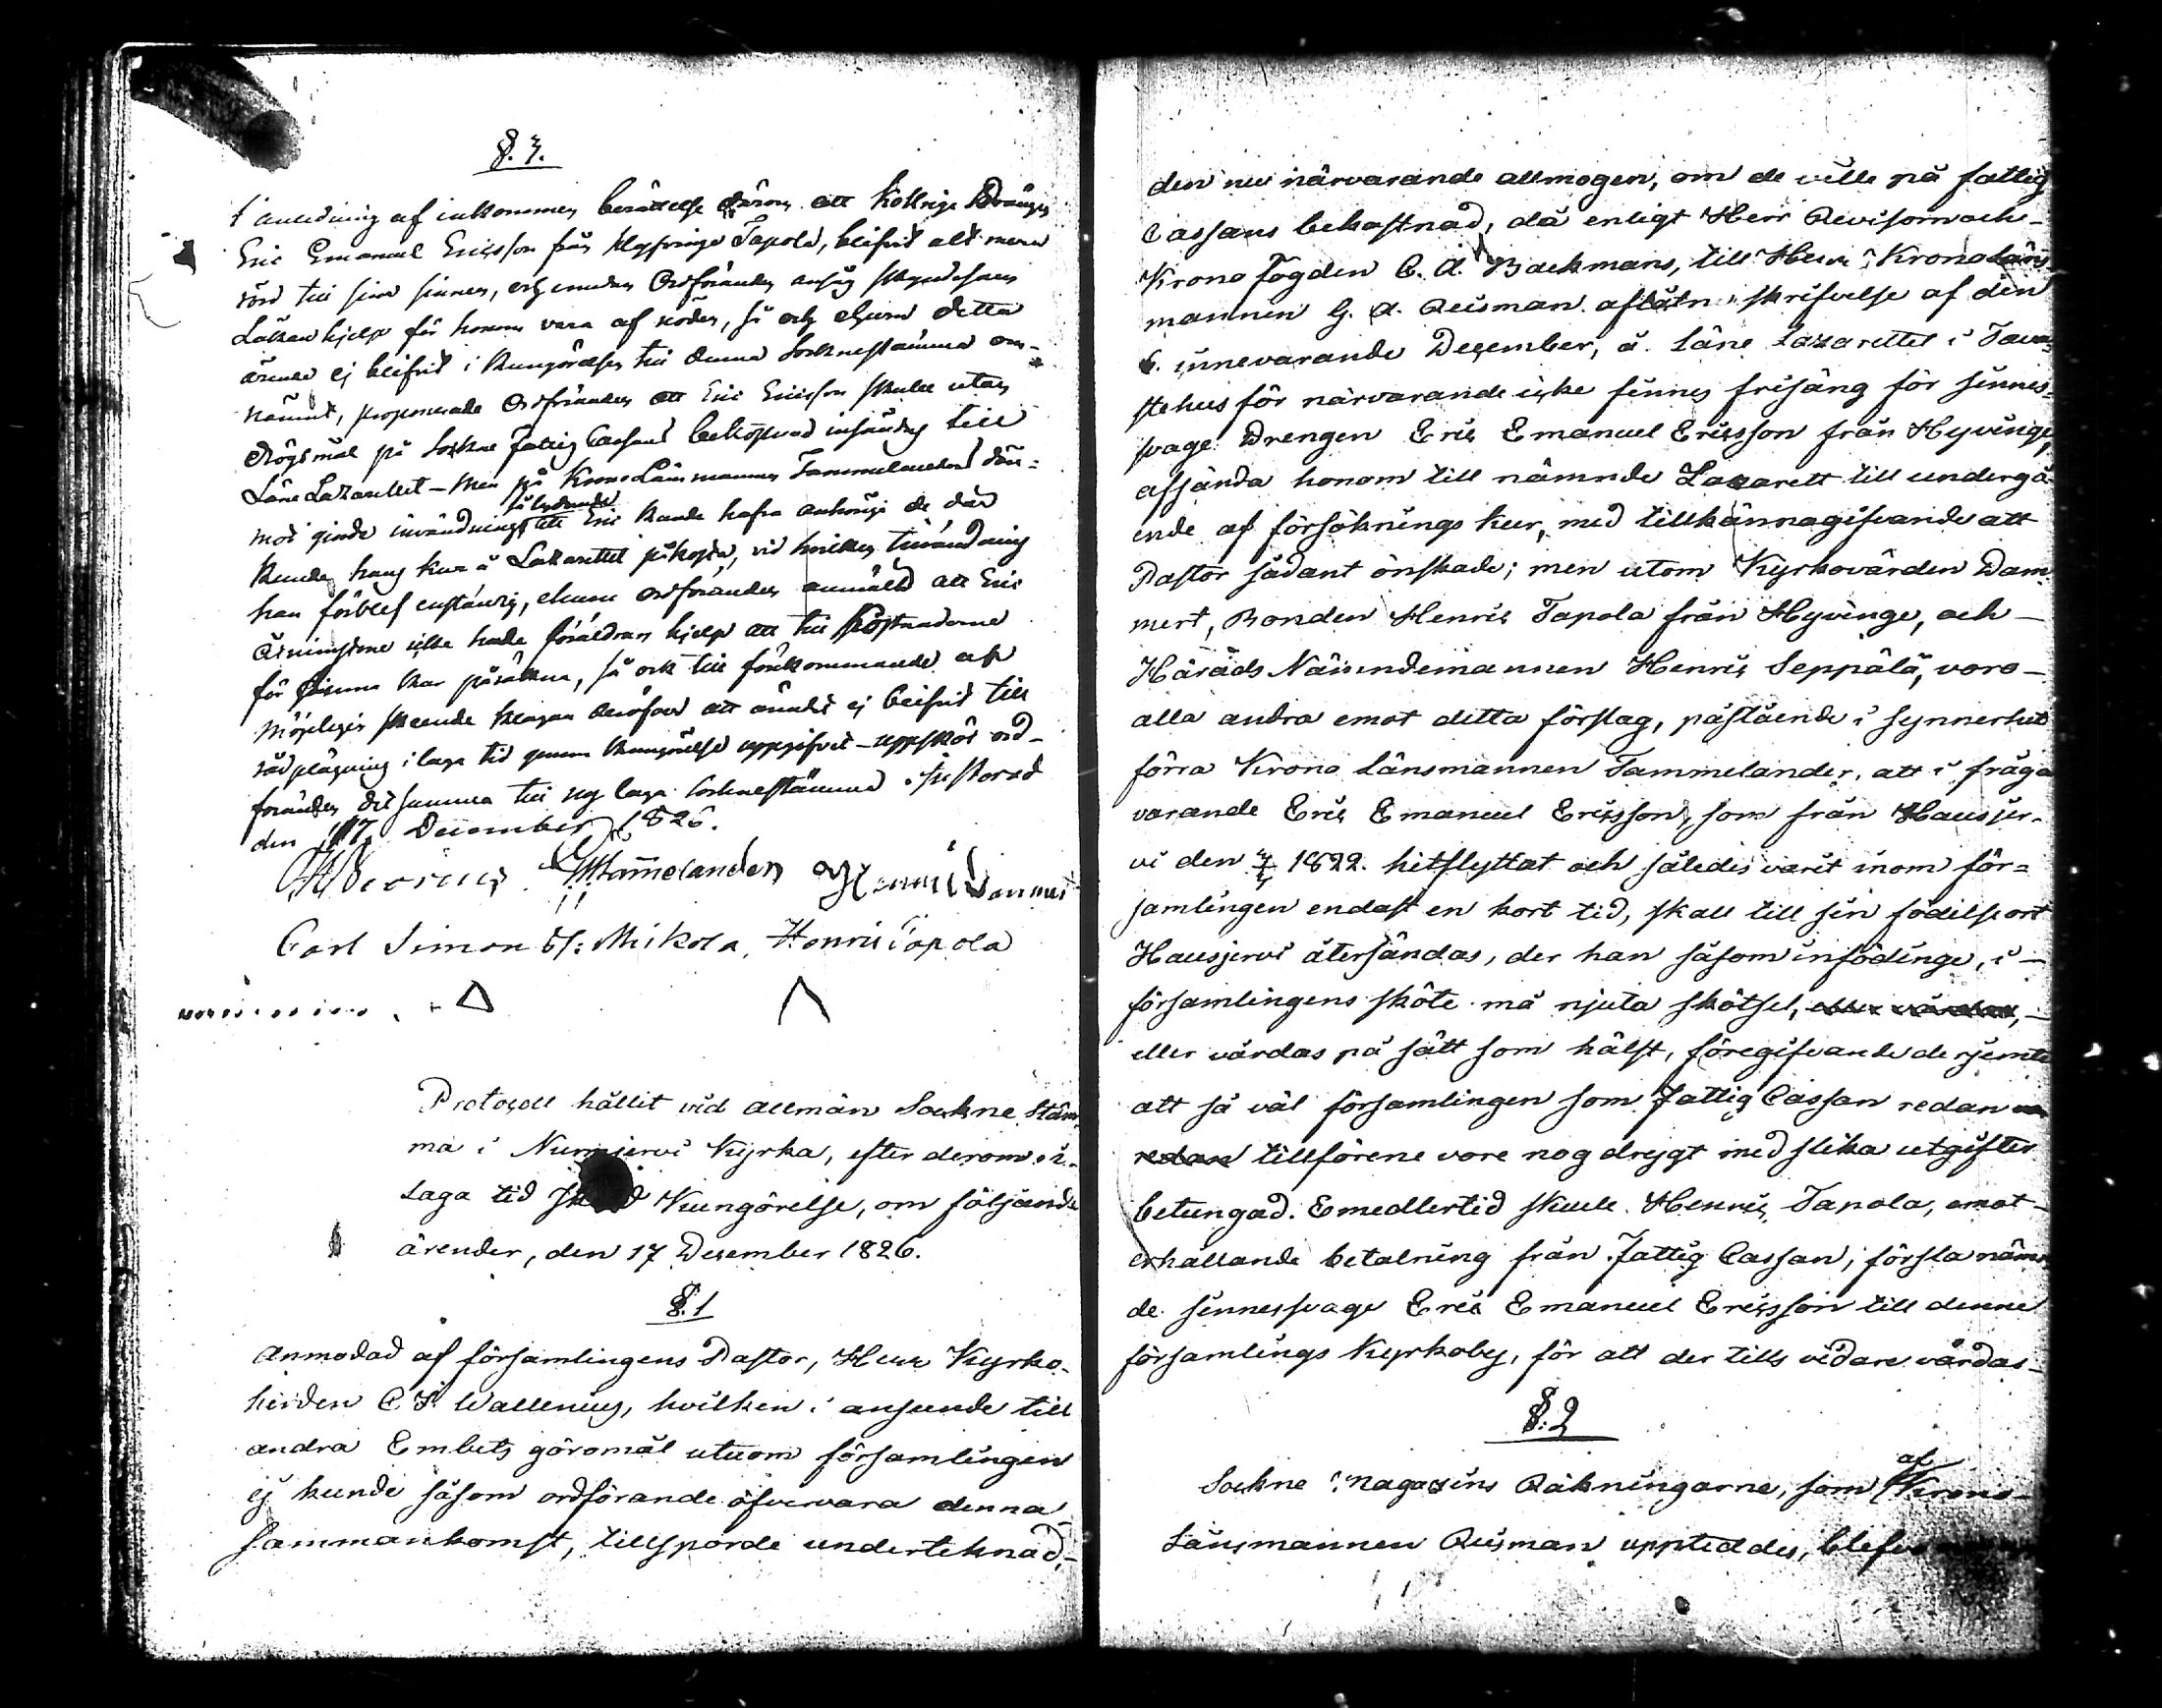 §. 3.
I anledning af inkommen berättelse därom att Kollrige Drängen
Eric Emanuel Ericsson från Hyfvinge Tapola, blifvit allt mera
rörd till sina sinnen, och emedan Ordföranden ansåg skyndesam
Läkarehjelp för honom vara af nöden, så och ehuru detta
ärende ej blifvit i kungörelsen till denna Socknestämma om-
nämnt, proponerade Ordföranden att Eric Ericsson skulle utan
drögsmål på Sockne Fattig Cassans bekostnad insändas till
Läne Lazarettet – Men på Krono Länsmannen Tammelanders där=
mot gjorde invändning
kunde hans kur å Lazarettet påkosta, vid hvilken invändning
han förblef enständig, ehuru ordföranden anmälde att Eric
Åtminstone icke hade föräldrars hjelp att till kostnaderne
för kur påräkna, så ock till förekommande af
möjligen skeende klagan deröfver att ämnet ej blifvit till
rådplägning i laga tid genom Kungörelse uppgifvit – uppsköt ord-
föranden det samma till ny laga Socknestämma
den 17 December 1826.
Tammelander Henric Dammert
Carl Simon Mikola, Henric Tapola
Protocoll hållit vid allmän Sockne Stäm
ma i Nurmjervi Kyrka, efter derom i
Laga tid Kungörelse, om följande
ärender, den 17 Desember 1826.
§. 1
Anmodad af församlingens Pastor, Herr Kyrko-
herden C J. Wallenius, hvilken i anseende till
andra Embets göromål utuom församlingen
ej kunde såsom ordförande öfvervara denna
Sammankomst, tillsporde undertekna
den nu närvarande allmogen, om de ville på fattig
Cassans bekostnad, då enligt Herr Revisorn och
Krono Fogden C. A. Backmans, till Herr Krono Läns
mannen G. A. Reisman aflåtn skrifvelse af den
6. innevarande Desember, å Läne Lazarettet i Tawa
stehus för närvarande icke finnes frisäng för sinnes=
svage Drengen Eric Emanuel Ericsson från Hyvinge,
afsända honom till nämnde Lazarett till undergå
ende af försöknings kur, med tillkännagifvande att
Pastor sådant önskade; men utom Kyrkovärden Dam
mert, Bonden Henric Tapola från Hyvinge, och
Härads Nämndemannen Henric Seppälä, voro
alla andra emot detta förslag, påstående i synnerhet
förra Krono Länsmannen Tammelander, att i fråga
varande Eric Emanuel Ericsson, som från Hausjer-
vi den 1822. hitflyttat och således varit inom för=
samlingen endast en kort tid, skall till sin födelseort
Hausjervi återsändas, der han såsom infödinge, i
församlingens sköte må njuta skötsel,
eller vårdas på sätt som hälst, föregifvande derjemte
att så väl församlingen som Fattig Cassan redan
redan tillförene vore nog drygt med slika utgifter
betungad. Emedlertid skulle Henric Tapola, emot
erhållande betalning från Fattig Cassan, försla näm
de sinnessvage Eric Emanuel Ericsson till denne
församlings Kyrkoby, för att der tills vidare vårdas
§. 2
Sockne Magasins Räkningarne, som af Krono
Länsmannen Reisman uppteddes, blefvo